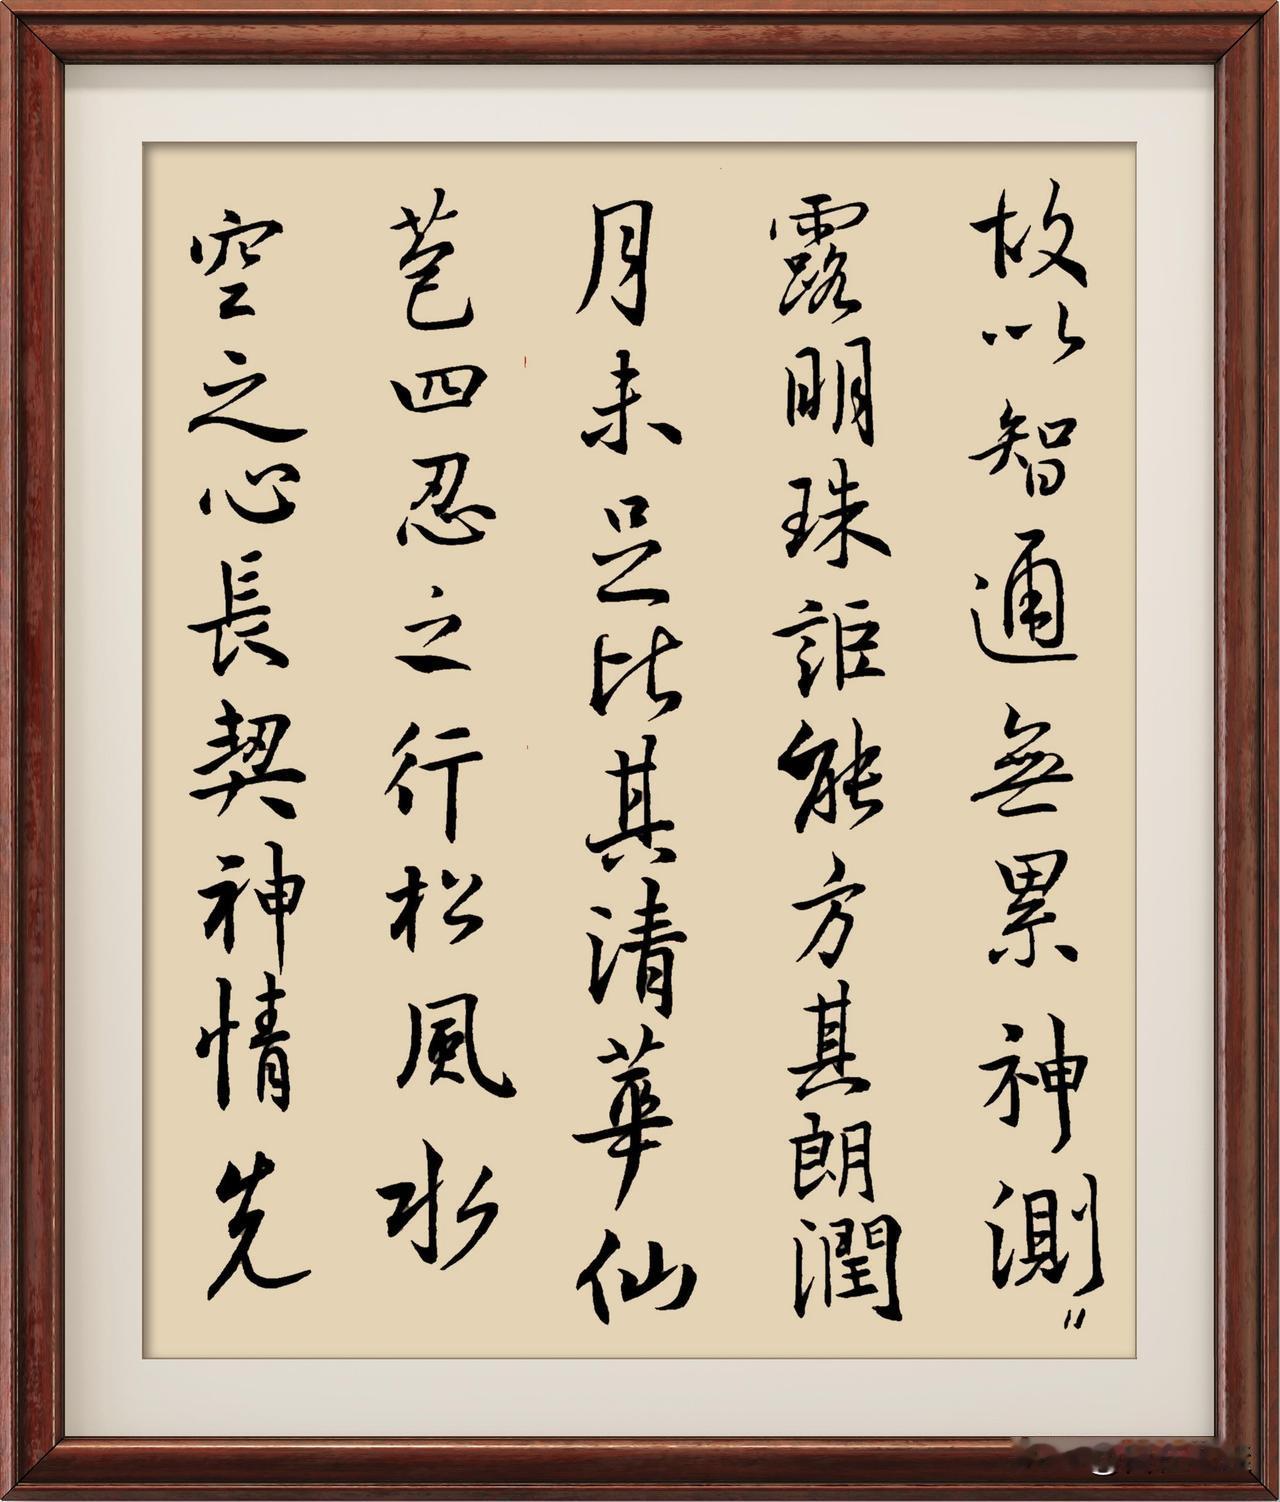 故以智通無累神測〃
露明珠詎能方其朗潤
月未足比其清華仙
苞四忍之行松風水
空之心長契神情先